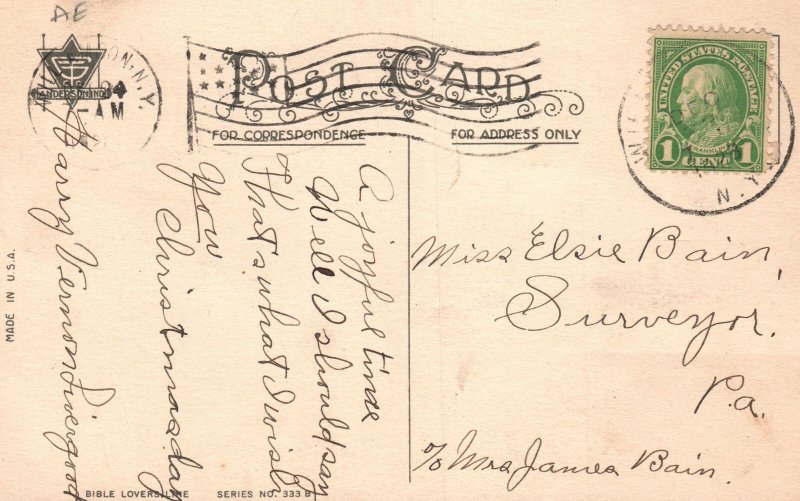 AE
N.Y.
4
AM
ANDERSON, IND.
POST CARD
FOR CORRESPONDENCE
FOR ADDRESS ONLY
UNITED STATES POSTAGE
FRANKLIN
1 CENT 1
N.Y.
A joyful time
Well I should say
That's what I wish
You
Christmas day
Harry Vernon
Miss Elsie Bain,
Surveyor,
Pa.
c/o Mrs James Bain.
MADE IN U.S.A.
BIBLE LOVERS LINE SERIES NO. 333 B